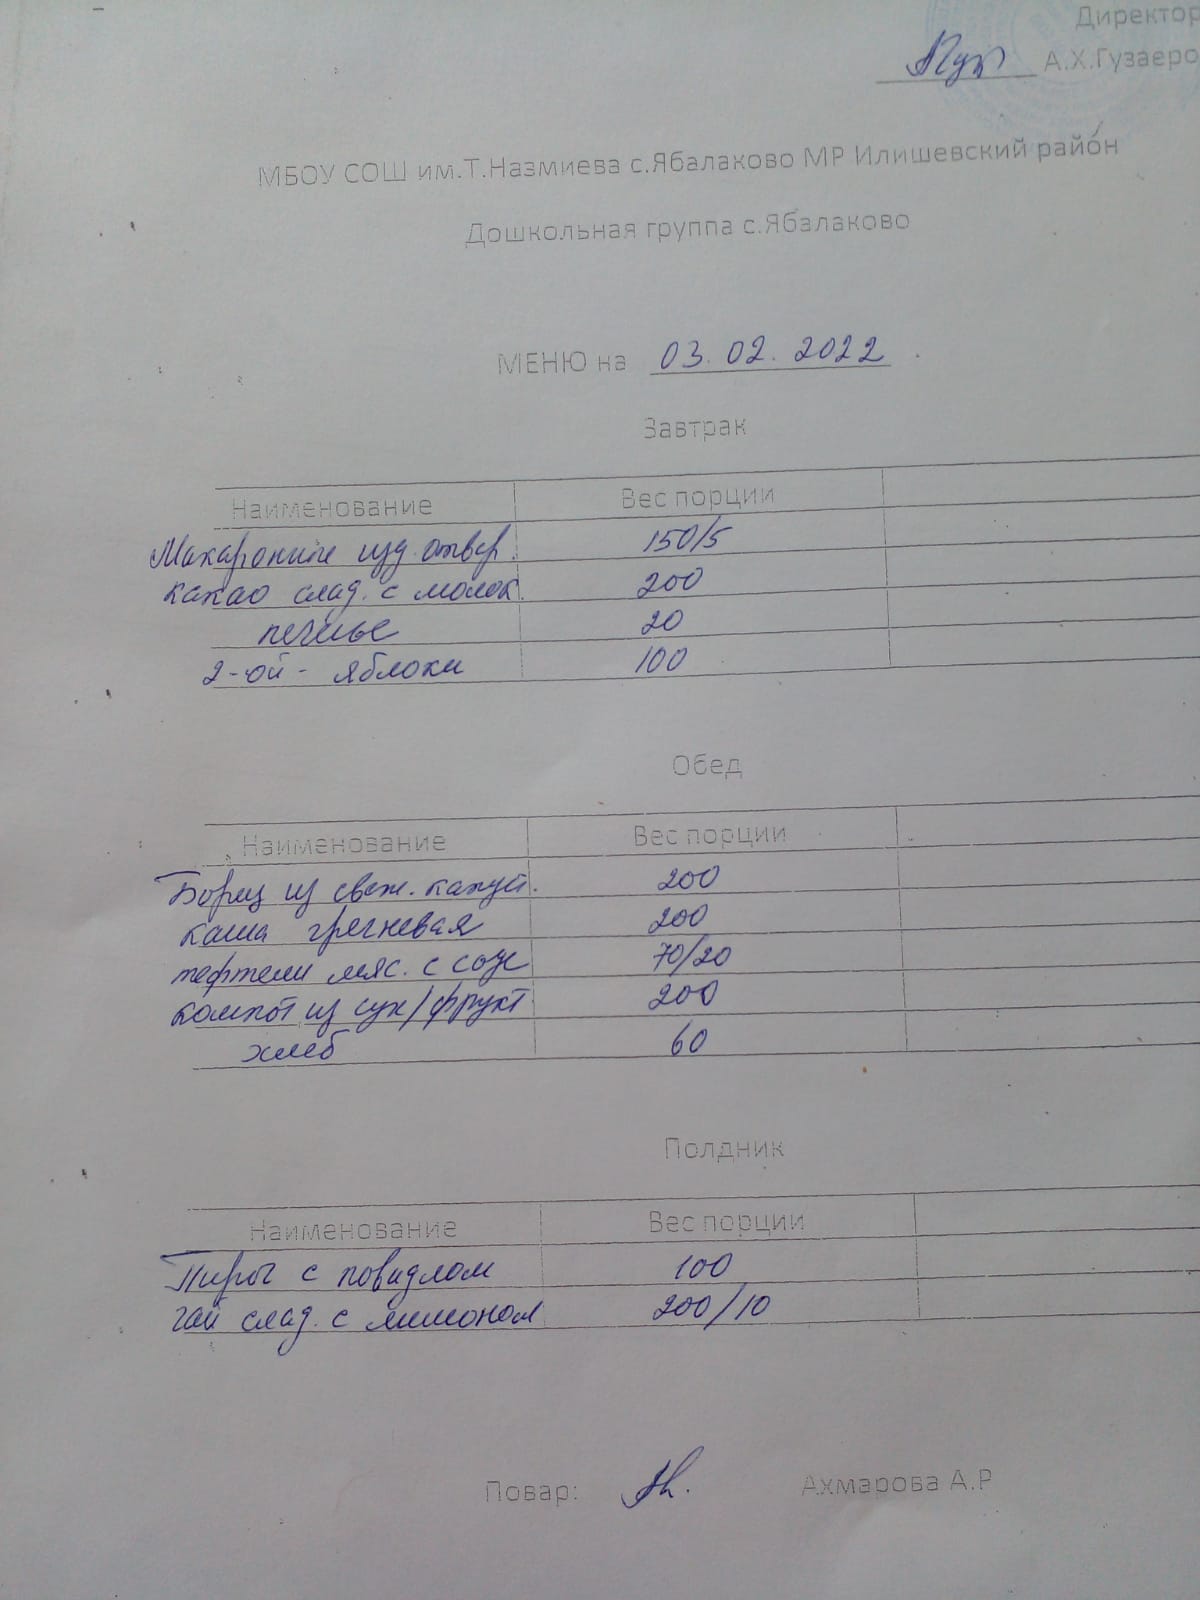 Директор
А.Х.Гузаеро
МБОУ СОШ им.Т.Назмиева с.Ябалаково МР Илишевский район
Дошкольная группа с.Ябалаково
МЕНЮ на 03.02.2022
Завтрак
Наименование Вес порции
Макаронные изд. отвар. 150/5
какао слад. с молок 200
печенье 20
2-ой - яблоки 100
Обед
Наименование Вес порции
Борщ из свеж. капуст. 200
каша гречневая 200
тефтели мяс. с соус 70/20
компот из сух/фрукт 200
хлеб 60
Полдник
Наименование Вес порции
Пирог с повидлом 100
чай слад. с лимоном 200/10
Повар: Ахмарова А.Р